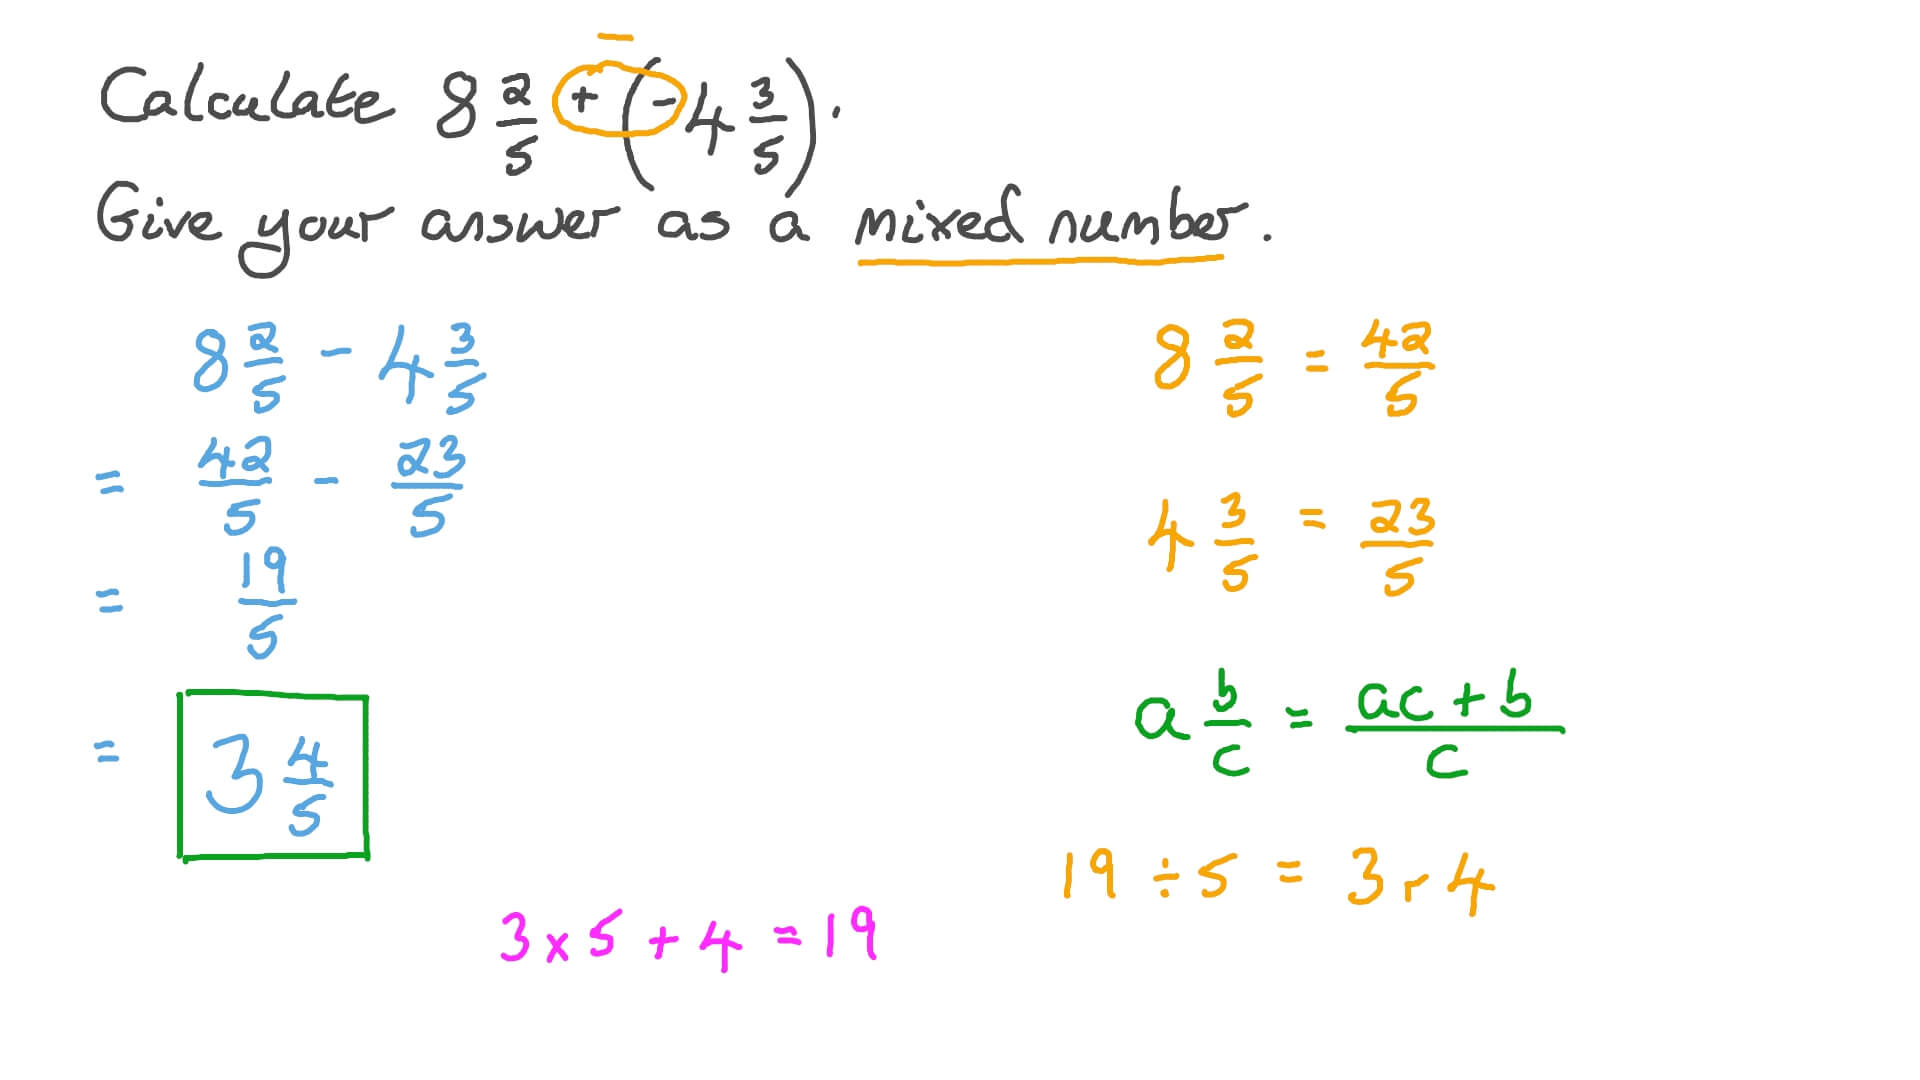 −
Calculate 8 2/5 + (−4 3/5).
Give your answer as a mixed number.
8 2/5 − 4 3/5
= 42/5 − 23/5
= 19/5
= 3 4/5
3 × 5 + 4 = 19
8 2/5 = 42/5
4 3/5 = 23/5
a b/c = ac + b/c
19 ÷ 5 = 3 r 4